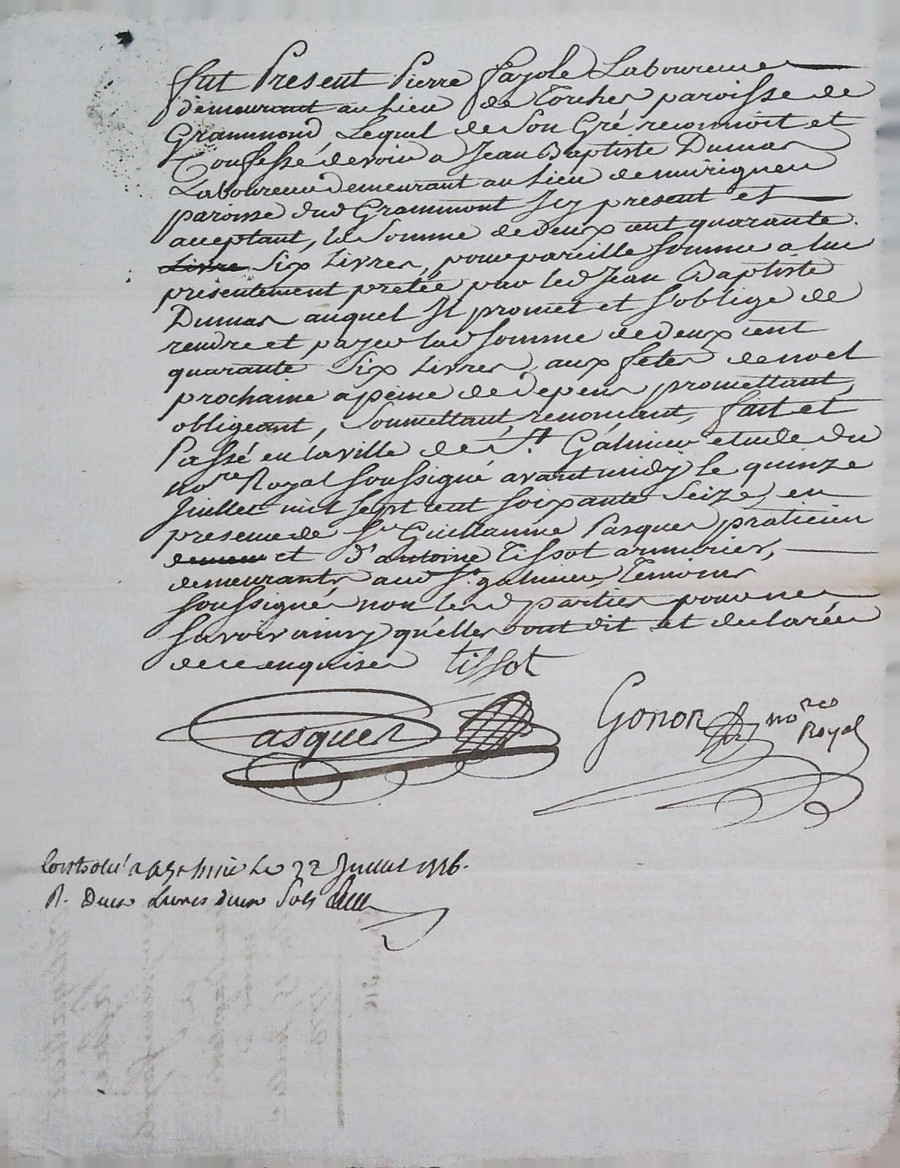 fut Present Pierre fayole Laboureur
demeurant au Lieu de Torches paroisse de
Grammond Lequel de Son Gré reconnoit et
Confessé devoir a Jean Baptiste Dumas
Laboureur demeurant au Lieu de
paroisse dud Grammont Jcy present et
acceptant, la Somme de deux cent quarante
Livre Six Livres, pour pareille somme a luy
presentement pretée par led Jean Baptiste
Dumas auquel Jl promet et s'oblige de
rendre et payer lad somme de deux cent
quarante Six Livres, aux fêtes de noel
prochaine a peine de Depens promettant,
obligeant, Soumettant, renoncant, fait et
Passé en la ville de St Galmier etude du
nore Royal soussigné avant midy le quinze
Juillet mil sept cent soixante Seize, en
presence de Sr Guillaume Pasquer praticien
et d'antoine Tissot armurier,
demeurants aud St galmier Temoins
soussignés non les d parties pour ne
savoir ainsy qu'elles ont dit et declarées
de ce enquises Tissot
Pasquer Gonon nore
Royal
Controlé a St le 22 Juillet 1776.
R. Deux Livres deux sols